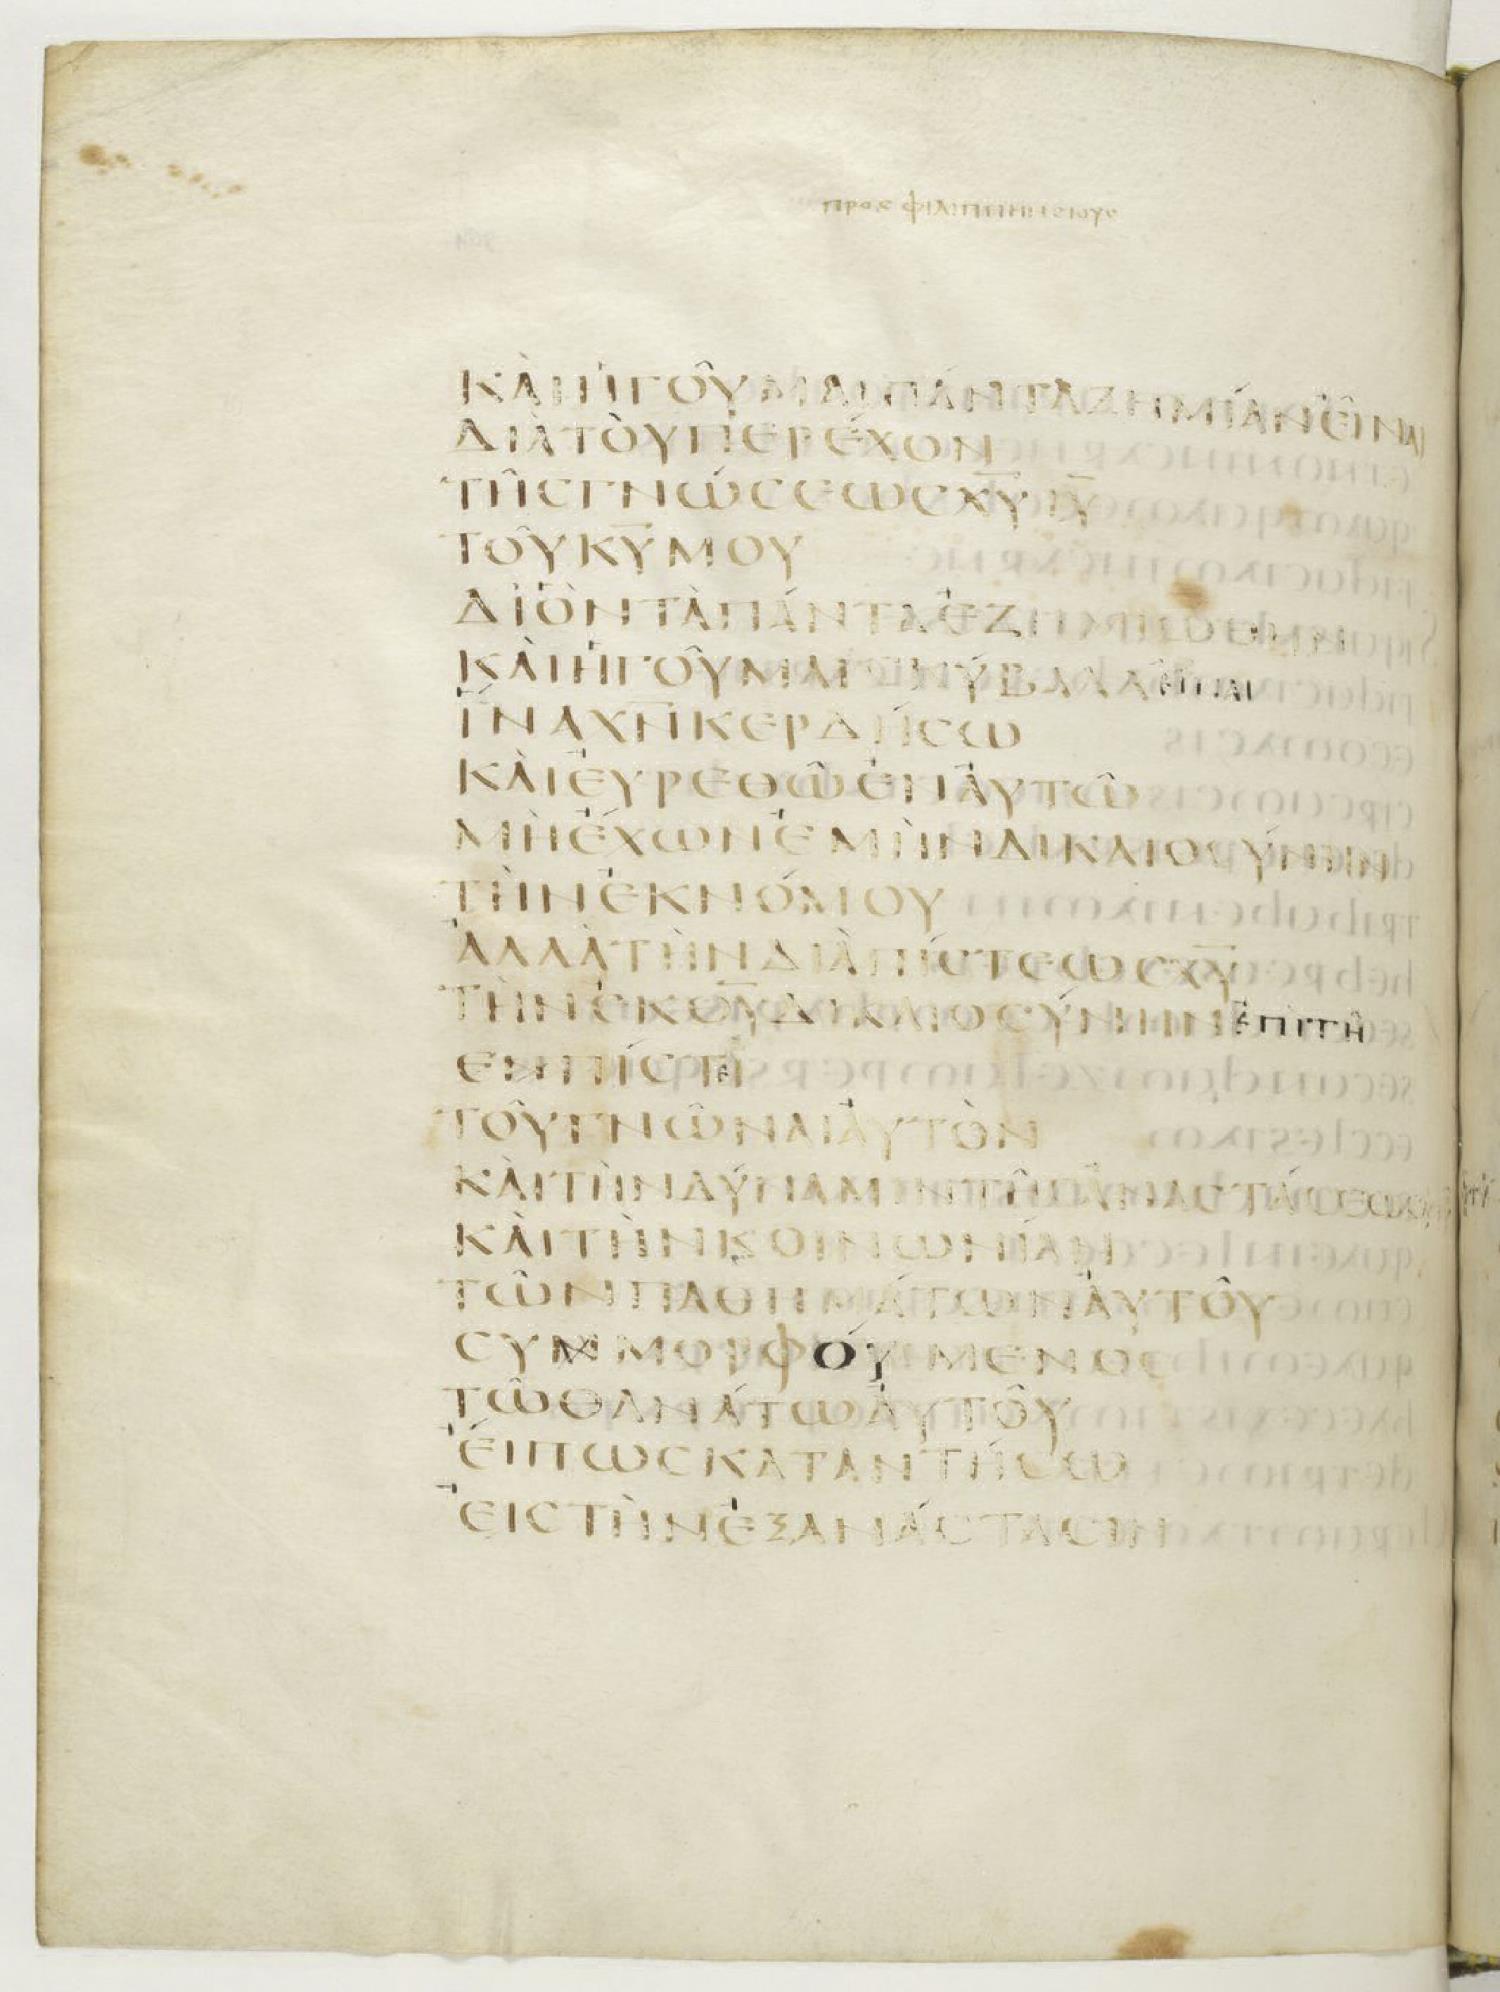 προσ φιλιππησιουσ
ΚᾺΙἩΓΟΥ͂ΜΑΙΠΆΝΤΑΖΗΜΊΑΝΕἾΝΑΙ
ΔΙᾺΤῸΥΠΕΡΈΧΟΝ
ΤΗ͂ϹΓΝΏϹΕΩϹΧ̅Υ̅Ι̅Υ̅
ΤΟΥ͂Κ̅Υ̅ΜΟΥ
ΔΙὋΝΤᾺΠΆΝΤΑἘΖΗΜΙΩΘΗΝ
ΚᾺΙἩΓΟΥ͂ΜΑΙϹΚΎΒΑΛΑΕΙΝΑΙ
ἽΝΑΧ̅Ν̅ΚΕΡΔΉϹΩ
ΚᾺΙΕὙΡΕΘΩ͂ἘΝἈΥΤΩ͂
ΜῊἜΧΩΝἘΜῊΝΔΙΚΑΙΟϹΎΝΗΝ
ΤῊΝἘΚΝΌΜΟΥ
ἈΛΛᾺΤῊΝΔΙᾺΠΊϹΤΕΩϹΧ̅Υ̅
ΤῊΝἘΚΘ̅Υ̅ΔΙΚΑΙΟϹΎΝΗΝἘΠΙΤΗ͂
ΕΝΠΊϹΤΕΙ
ΤΟΥ͂ΓΝΩ͂ΝΑΙἈΥΤῸΝ
ΚᾺΙΤῊΝΔΎΝΑΜΙΝΤΗ͂ϹἈΝΑϹΤΆϹΕΩϹ
ΚᾺΙΤῊΝΚΟΙΝΩΝΊΑΝ
ΤΩ͂ΝΠΑΘΗΜΆΤΩΝἈΥΤΟΥ͂
ϹΥΝΜΟΡΦΟΎΜΕΝΟϹ
ΤΩ͂ΘΑΝΆΤΩἈΥΤΟΥ͂
ἜΙΠΩϹΚΑΤΑΝΤΉϹΩ
ἘΙϹΤῊΝἘΞΑΝΆϹΤΑϹΙΝ